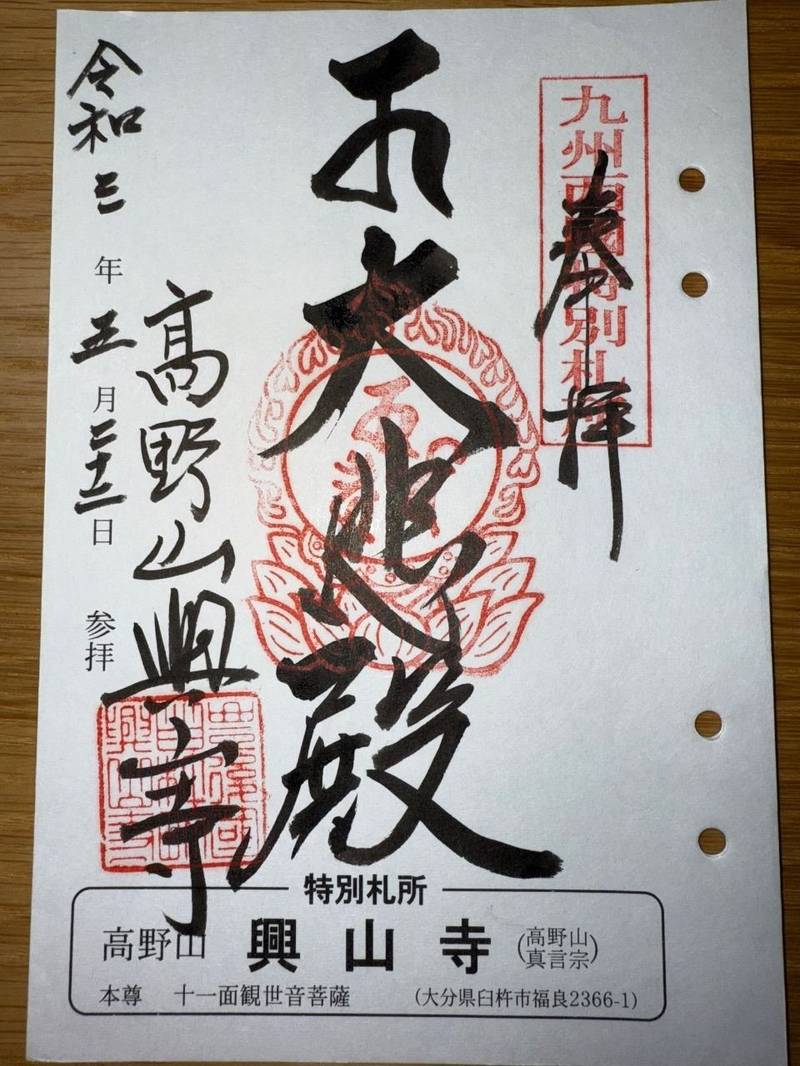 九州西國特別札所
奉拝
大悲殿
高野山興山寺
令和三年五月二十二日 参拝
特別札所
高野山 興山寺 (高野山真言宗)
本尊 十一面観世音菩薩 (大分県臼杵市福良2366-1)